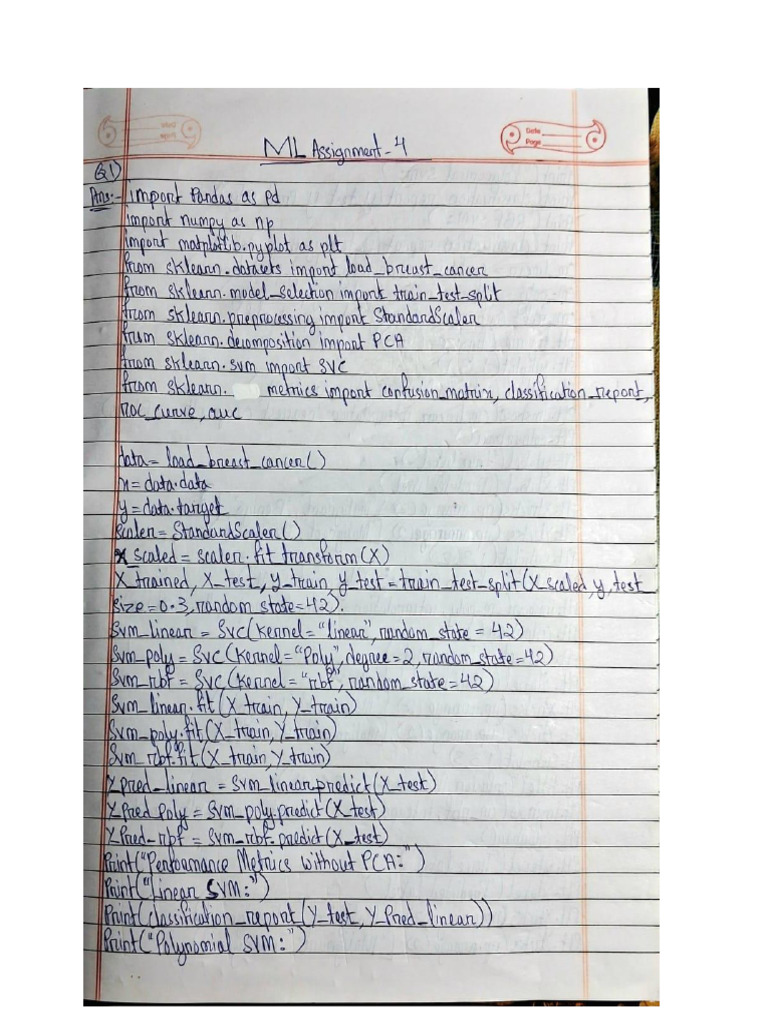 ML Assignment-4
Date
Page
Q1)
Ans:- import Pandas as pd
import numpy as np
import matplotlib.pyplot as plt
from sklearn.datasets import load_breast_cancer
from sklearn.model_selection import train_test_split
from sklearn.preprocessing import StandardScaler
from sklearn.decomposition import PCA
from sklearn.svm import SVC
from sklearn. metrics import confusion_matrix, classification_report,
roc_curve, auc
data = load_breast_cancer()
x = data.data
y = data.target
scaler = StandardScaler()
X_scaled = scaler.fit transform(X)
X_trained, X_test, y_train, y_test = train_test_split(X_scaled, y, test_
size=0.3, random_state=42).
Svm_linear = SVC(Kernel="linear", random_state = 42)
Svm_poly = SVC(Kernel="Poly", degree=2, random_state=42)
Svm_rbf = SVC(Kernel = "rbf", random_state=42)
Svm_linear.fit(X_train, Y_train)
Svm_poly.fit(X_train, Y_train)
Svm_rbf.fit(X_train, Y_train)
Y_pred_linear = Svm_linear.predict(X_test)
Y_Pred_Poly = Svm_poly.predict(X_test)
Y_Pred_rbf = Svm_rbf.predict(X_test)
Print("Performance Metrics without PCA:")
Print("linear SVM:")
Print(classification_report(Y_test, Y_Pred_linear))
Print("Polynomial SVM:")